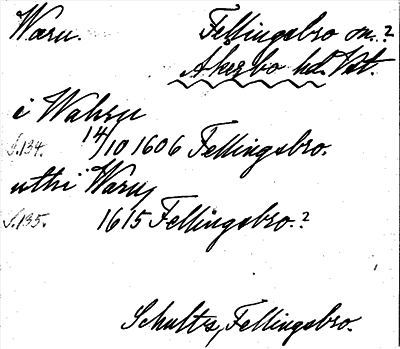 Waru. Fellingsbro sn.?
Åkerbo hd. Vst.
i Wahru
S. 134. 14/10 1606 Fellingsbro.
uthi Waru
S. 135. 1615 Fellingsbro.?
Schultz, Fellingsbro.